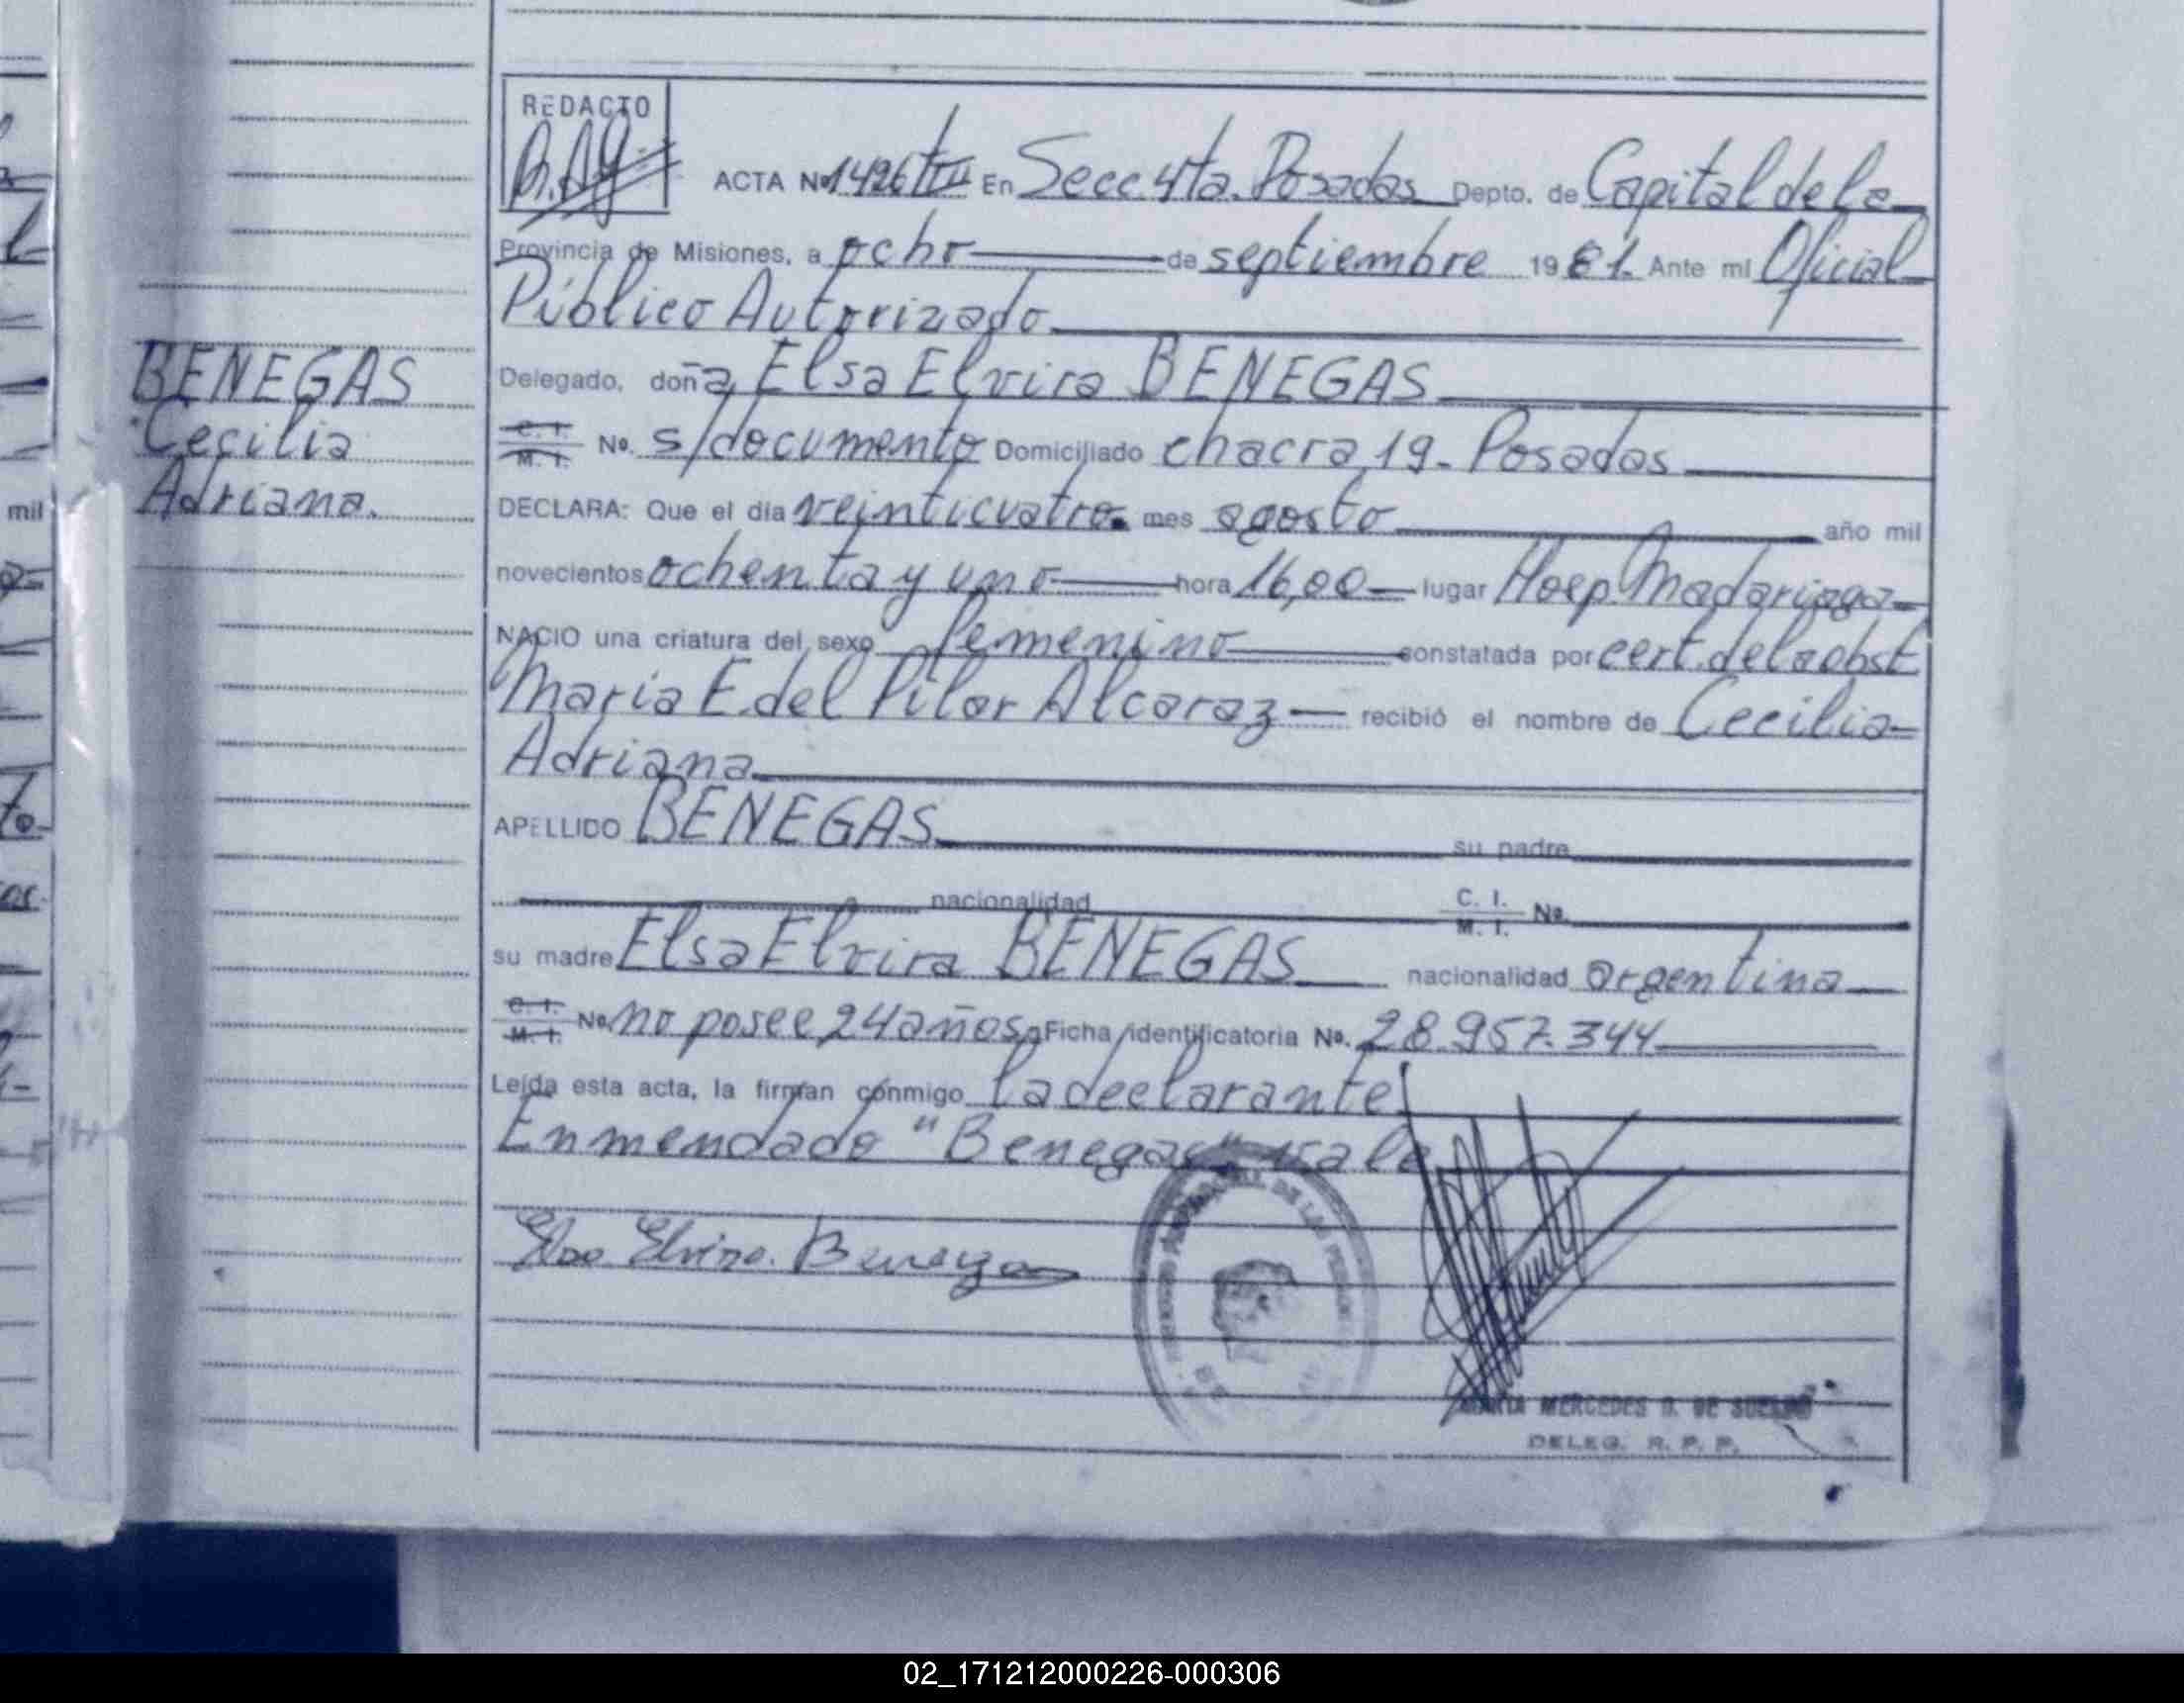 REDACTO
ACTA Nº 1426 En Secc 4ta. Posadas Depto. de Capital de la
Provincia de Misiones, a ocho de septiembre 1981. Ante mi Oficial
Público Autorizado
Delegado, doña Elsa Elvira BENEGAS
C. I. M. I. No. s/documento Domiciliado chacra 19. Posadas
DECLARA: Que el día veinticuatro mes agosto año mil
novecientos ochenta y uno hora 16,00 lugar Hosp. Madariaga
NACIO una criatura del sexo femenino constatada por cert. de la obst
Maria E. del Pilar Alcaraz recibió el nombre de Cecilia
Adriana
APELLIDO BENEGAS su padre
nacionalidad C. I. M. I. No.
su madre Elsa Elvira BENEGAS nacionalidad argentina
C. I. M. I. No. no posee 24 años Ficha identificatoria No. 28.957.344
Leída esta acta, la firman conmigo la declarante
Enmendado "Benegas" vale
Elsa Elvira. Benegas
MERCEDES DE
DELEG. R. P. P.
BENEGAS
Cecilia
Adriana.
mil
02_171212000226-000306